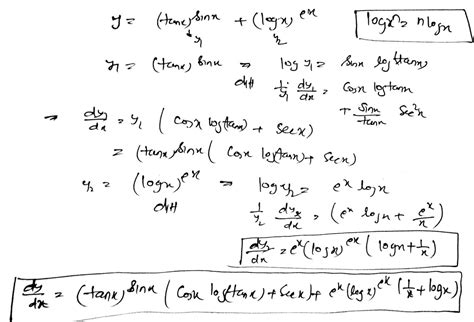 y = (tanx)^sinx + (logx)^ex logx^n = n logx
y1 y2
y1 = (tanx)^sinx ⇒ log y1 = sinx log(tanx)
diff 1/y1 dy1/dx = cosx logtanx
+ sinx/tanx sec²x
⇒ dy1/dx = y1 ( cosx log(tanx) + secx)
= (tanx)^sinx ( cosx log(tanx) + secx)
y2 = (logx)^ex ⇒ logy2 = e^x logx
diff 1/y2 dy2/dx = (e^x logx + e^x/x)
dy2/dx = e^x (logx)^ex ( logx + 1/x)
dy/dx = (tanx)^sinx ( cosx log(tanx) + secx) + e^x (logx)^ex (1/x + logx)